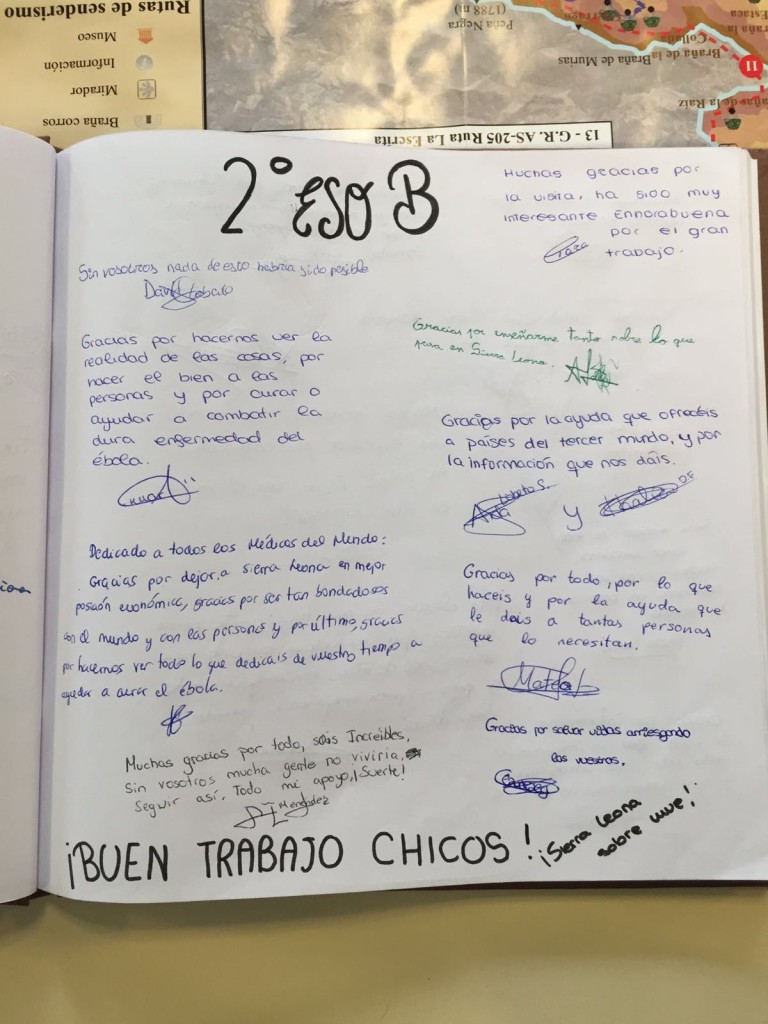 Rutas de senderismo
Museo
Información
Mirador
Braña corros
Peña Negra
(1.788 m)
Collada
Braña de la
Braña de Murias
Estaca
11
de la Raíz
13 - G.R. AS-205 Ruta La Escrita
2º ESO B
Muchas gracias por
la visita, ha sido muy
interesante Ennorabuena
por el gran
trabajo.
Sin vosotros nada de esto habría sido posible
David
Gracias por hacernos ver la
realidad de las cosas, por
hacer el bien a las
personas y por curar o
ayudar a combatir la
dura enfermedad del
ébola.
Gracias por enseñarme tanto sobre lo que
pasa en Sierra Leona.
Gracias por la ayuda que ofrecéis
a países del tercer mundo, y por
la información que nos dáis.
Ana
y
Dedicado a todos los Médicos del Mundo:
Gracias por dejar a Sierra Leona en mejor
posición económica, gracias por ser tan bondadosos
con el mundo y con las personas y por último, gracias
por hacernos ver todo lo que dedicais de vuestro tiempo a
ayudar a curar el ébola.
Gracias por todo, por lo que
haceis y por la ayuda que
le dais a tantas personas
que lo necesitan.
Gracias por salvar vidas arriesgando
las vuestras.
Muchas gracias por todo, sois Increibles,
Sin vosotros mucha gente no viviría,
Seguir así. Todo mi apoyo, ¡Suerte!
Menéndez
¡BUEN TRABAJO CHICOS!
¡Sierra Leona
sobrevive!